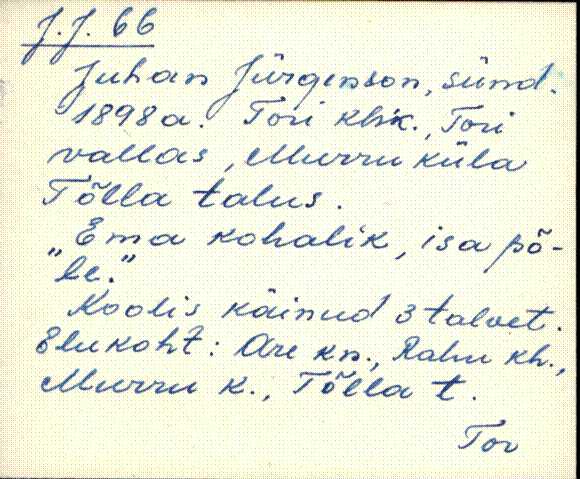 J.J. 66
Juhan Jürgenson, sünd.
1898 a. Tori khk., Tori
vallas, Murru küla
Tõlla talus.
"Ema kohalik, isa põ-
le."
Koolis käinud 3 talvet.
Elukoht: Are kn., Rahu kh.,
Murru k., Tõlla t.
Tor